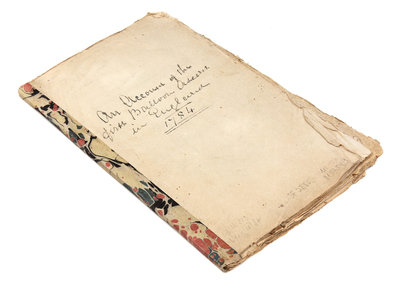 An Account of the
first Balloon Ascent
in England
1784